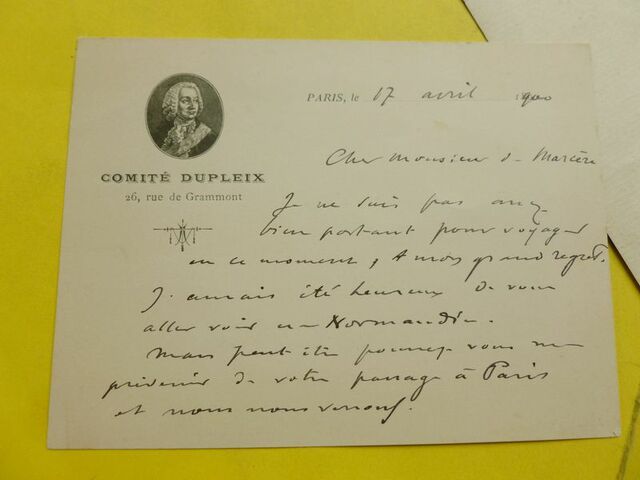 COMITÉ DUPLEIX
26, rue de Grammont
PARIS, le 17 avril 1900
Cher Monsieur de Marcère
Je ne suis pas assez
bien portant pour voyager
en ce moment, à mon grand regret.
J'aurais été heureux de vous
aller voir en Normandie.
Mais peut être pourrez vous me
prévenir de votre passage à Paris
et nous nous verrons.